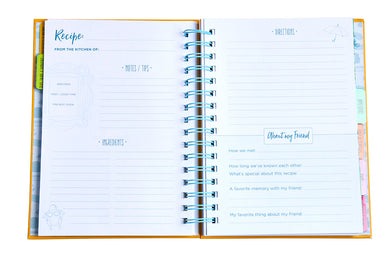 Recipe:
FROM THE KITCHEN OF:
NOTES / TIPS
INGREDIENTS
DIRECTIONS
About my Friend
How we met
How long we've known each other
What's special about this recipe
A favorite memory with my friend
My favorite thing about my friend